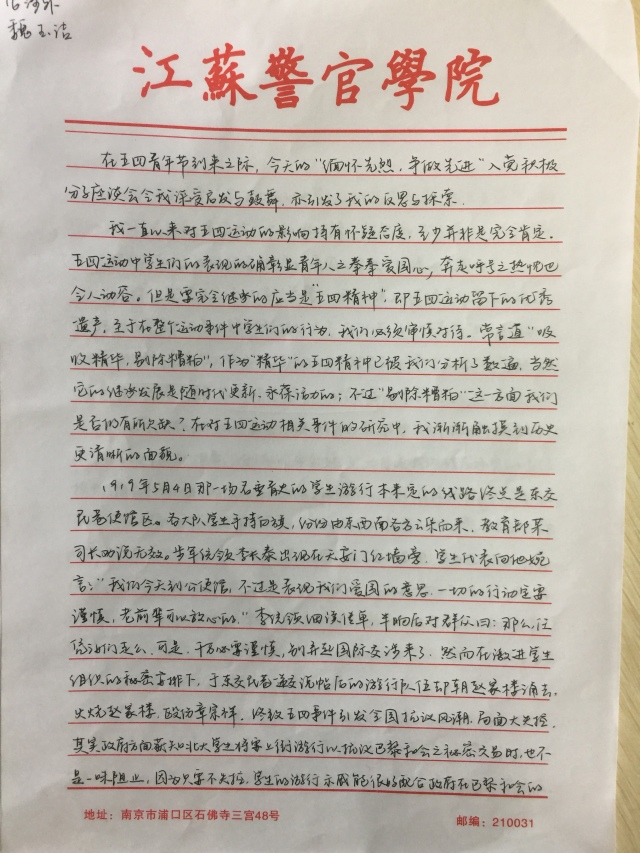 魏玉洁
江蘇警官學院
在五四青年节到来之际，今天的“缅怀先烈，争做先进”入党积极
分子座谈会令我深受启发与鼓舞，亦引发了我的反思与探索。
我一直以来对五四运动的影响持有怀疑态度，至少并非是完全肯定。
五四运动中学生们的表现的确彰显青年人之拳拳爱国心，奔走呼号之热忱也
令人动容。但是要完全继承的应当是“五四精神”，即五四运动留下的优秀
遗产，至于在整个运动事件中学生们的行为，我们必须审慎对待。常言道“吸
收精华，剔除糟粕”，作为“精华”的五四精神已被我们分析了数遍，当然
它的继承发展是随时代更新，永葆活力的；不过“剔除糟粕”这一方面我们
是否仍有所欠缺？在对五四运动相关事件的研究中，我渐渐触摸到历史
更清晰的面貌。
1919年5月4日那一场名垂青史的学生游行本来定的线路终点是东交
民巷使馆区。各大队学生手持白旗，纷纷由东西南各方云集而来，教育部某
司长劝说无效。步军统领李长泰出现在天安门红墙旁，学生代表向他婉
言：“我们今天到公使馆，不过是表现我们爱国的意思，一切的行动定要
谨慎，老前辈可以放心的。”李统领细读传单，半晌后对群众曰：那么，任
凭汝们走么。可是，千万必要谨慎，别弄起国际交涉来了。然而在激进学生
组织的秘密安排下，于东交民巷递交说帖后的游行队伍却朝赵家楼涌去，
火烧赵家楼，殴伤章宗祥，终致五四事件引发全国抗议风潮，局面大失控。
其实政府方面获知北大学生将要上街游行以抗议巴黎和会之秘密交易时，也不
是一味阻止，因为只要不失控，学生的游行示威能很好配合政府在巴黎和会的
地址：南京市浦口区石佛寺三宫48号
邮编：210031